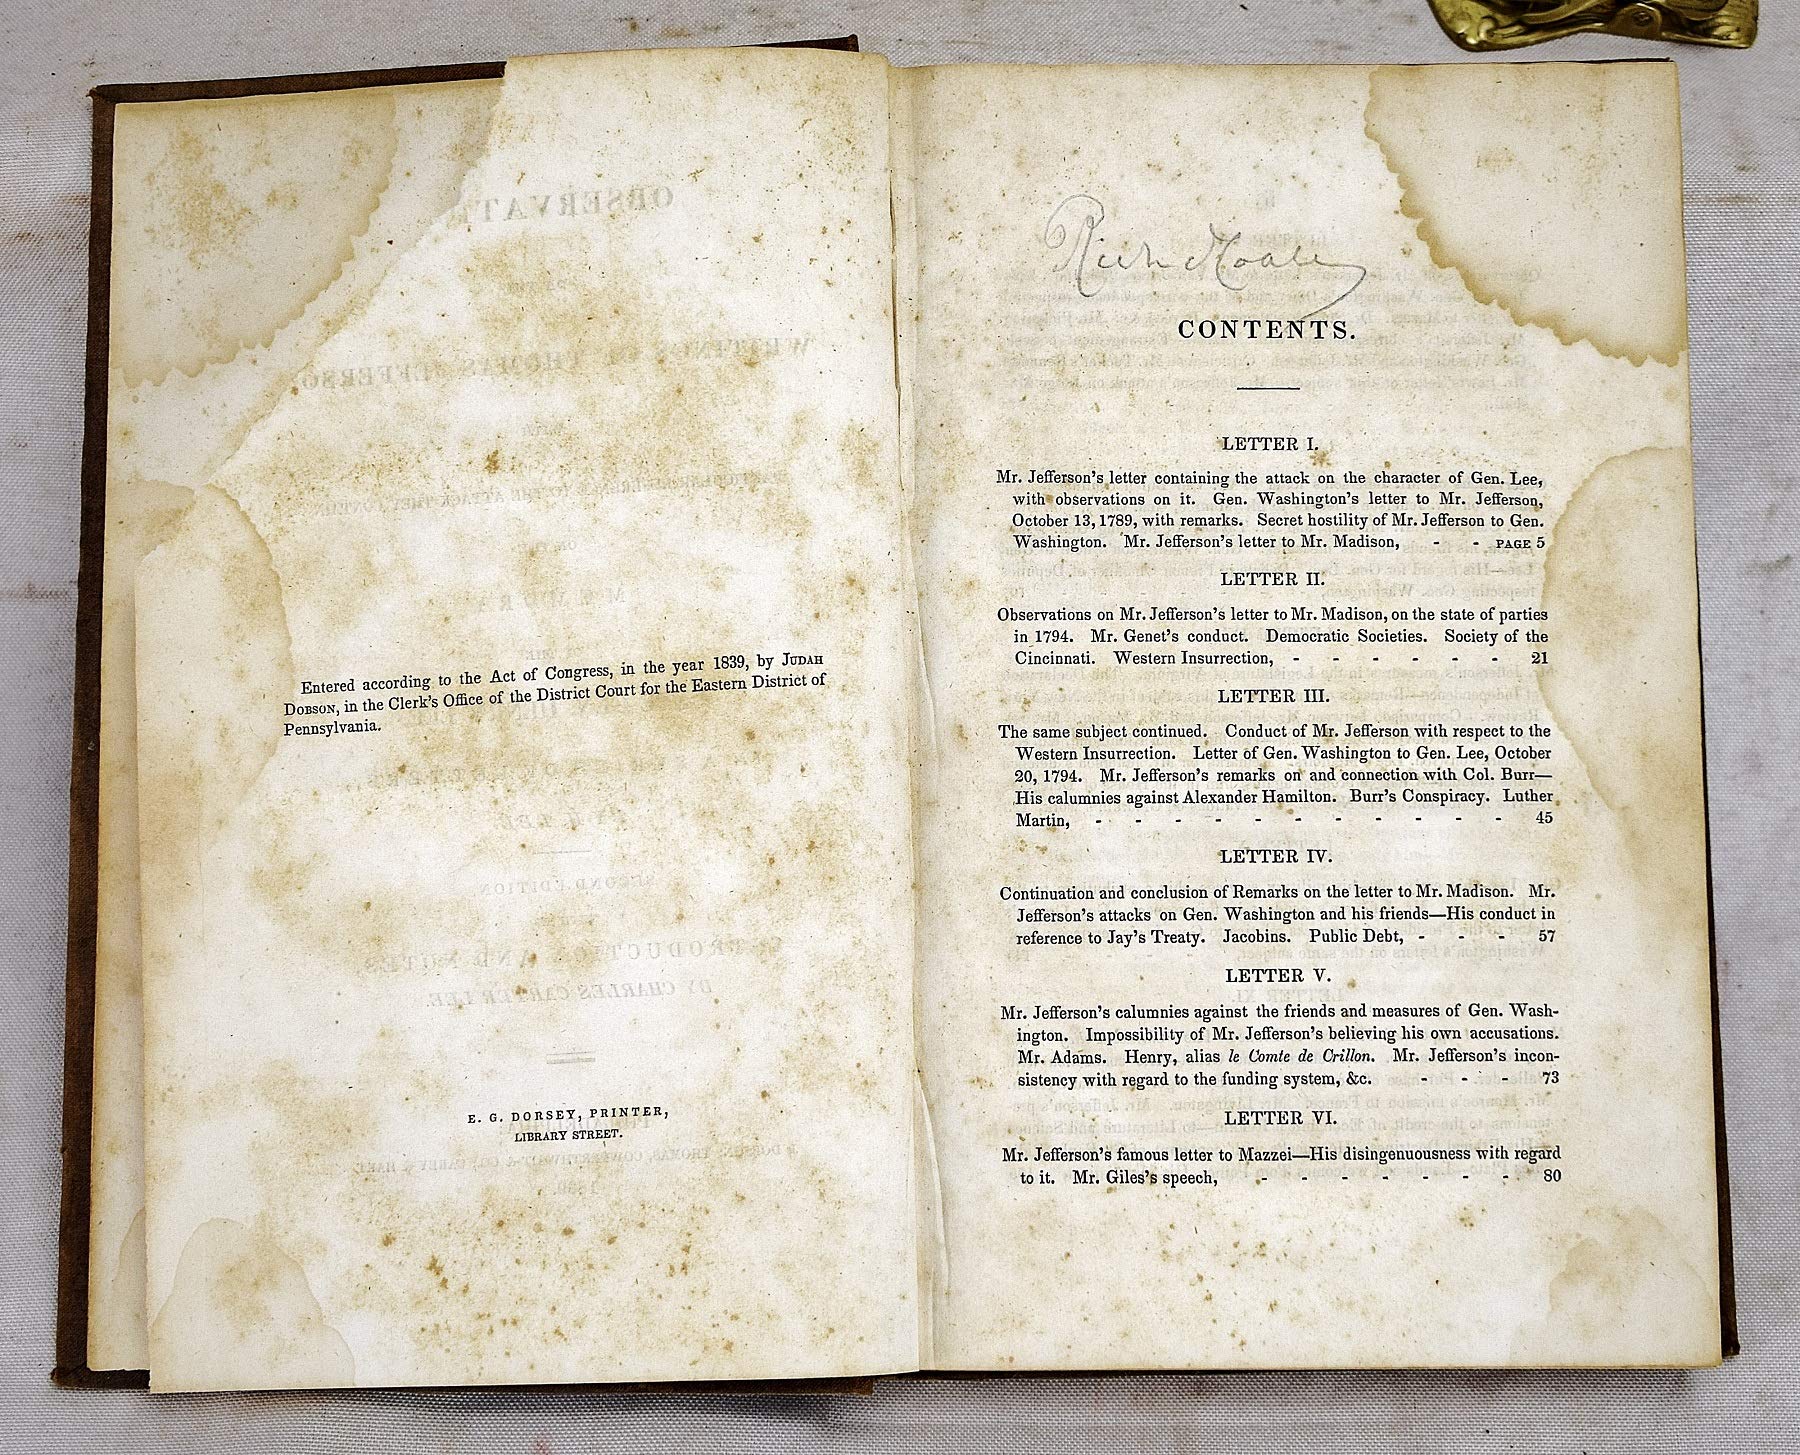 Entered according to the Act of Congress, in the year 1839, by JUDAH
DOBSON, in the Clerk's Office of the District Court for the Eastern District of
Pennsylvania.
E. G. DORSEY, PRINTER,
LIBRARY STREET.
CONTENTS.
LETTER I.
Mr. Jefferson's letter containing the attack on the character of Gen. Lee,
with observations on it. Gen. Washington's letter to Mr. Jefferson,
October 13, 1789, with remarks. Secret hostility of Mr. Jefferson to Gen.
Washington. Mr. Jefferson's letter to Mr. Madison, - - PAGE 5
LETTER II.
Observations on Mr. Jefferson's letter to Mr. Madison, on the state of parties
in 1794. Mr. Genet's conduct. Democratic Societies. Society of the
Cincinnati. Western Insurrection, - - - - - - 21
LETTER III.
The same subject continued. Conduct of Mr. Jefferson with respect to the
Western Insurrection. Letter of Gen. Washington to Gen. Lee, October
20, 1794. Mr. Jefferson's remarks on and connection with Col. Burr—
His calumnies against Alexander Hamilton. Burr's Conspiracy. Luther
Martin, - - - - - - - - - - - 45
LETTER IV.
Continuation and conclusion of Remarks on the letter to Mr. Madison. Mr.
Jefferson's attacks on Gen. Washington and his friends—His conduct in
reference to Jay's Treaty. Jacobins. Public Debt, - - - 57
LETTER V.
Mr. Jefferson's calumnies against the friends and measures of Gen. Wash-
ington. Impossibility of Mr. Jefferson's believing his own accusations.
Mr. Adams. Henry, alias le Comte de Crillon. Mr. Jefferson's incon-
sistency with regard to the funding system, &c. - - - 73
LETTER VI.
Mr. Jefferson's famous letter to Mazzei—His disingenuousness with regard
to it. Mr. Giles's speech, - - - - - - - 80